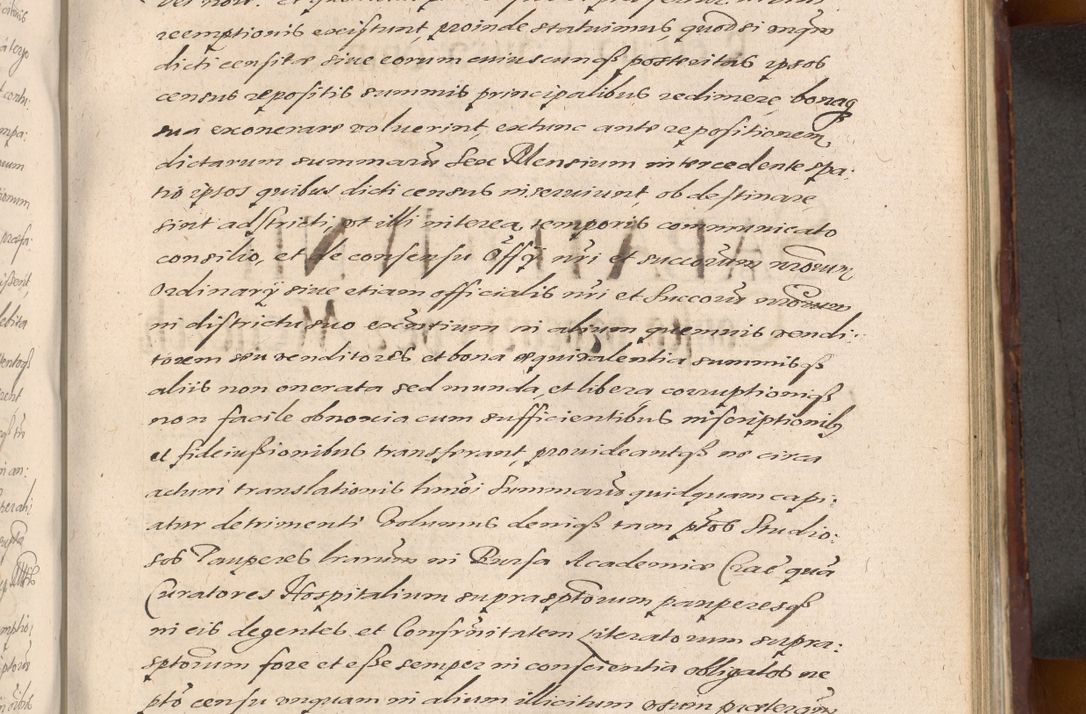 reemptionis existunt proinde statuimus quod si unqm
dicti censitæ siue eorum cuiuscunqȝ posteritas ipsos
census repositis summis principalibus redimere, bonaqȝ
sua exonerare voluerint, extunc ante repositionem
dictarum summarū Sex Mensium intercedente spa:
tio ipsos quibus dicti census inseruiunt, ob destinare
sint adstricti, vt illi interea, temporis communicato
consilio, et de consensu Offÿ nr̃i et succorum nrorum
Ordinarÿ siue etiam officialis nr̃i et Succorū nrorum
in districtu suo exn̄tium in alium quemuis vendi:
torem seu venditores et bona æquiualentia summisqȝ
aliis non onerata sed munda, et libera corruptioniqȝ
non facile obnoxia cum sufficientibus inscriptionibȝ
et fideiussionibus transferant, prouideantqȝ ne circa
actum translationis hmōi Summarū quidquam capi:
atur detrimenti Volumus deniqȝ tam ptos Studio:
sos Pauperes lrarum in Bursa Academiæ Crac̄ quā
Curatores Hospitalium suprasptorum pauperesqȝ
in eis degentes et Confrn̄itatem Literatorum supra:
sptorum fore et esse semper in conscientia obligatos ne
pto censu vnquam in alium illicitum vsum